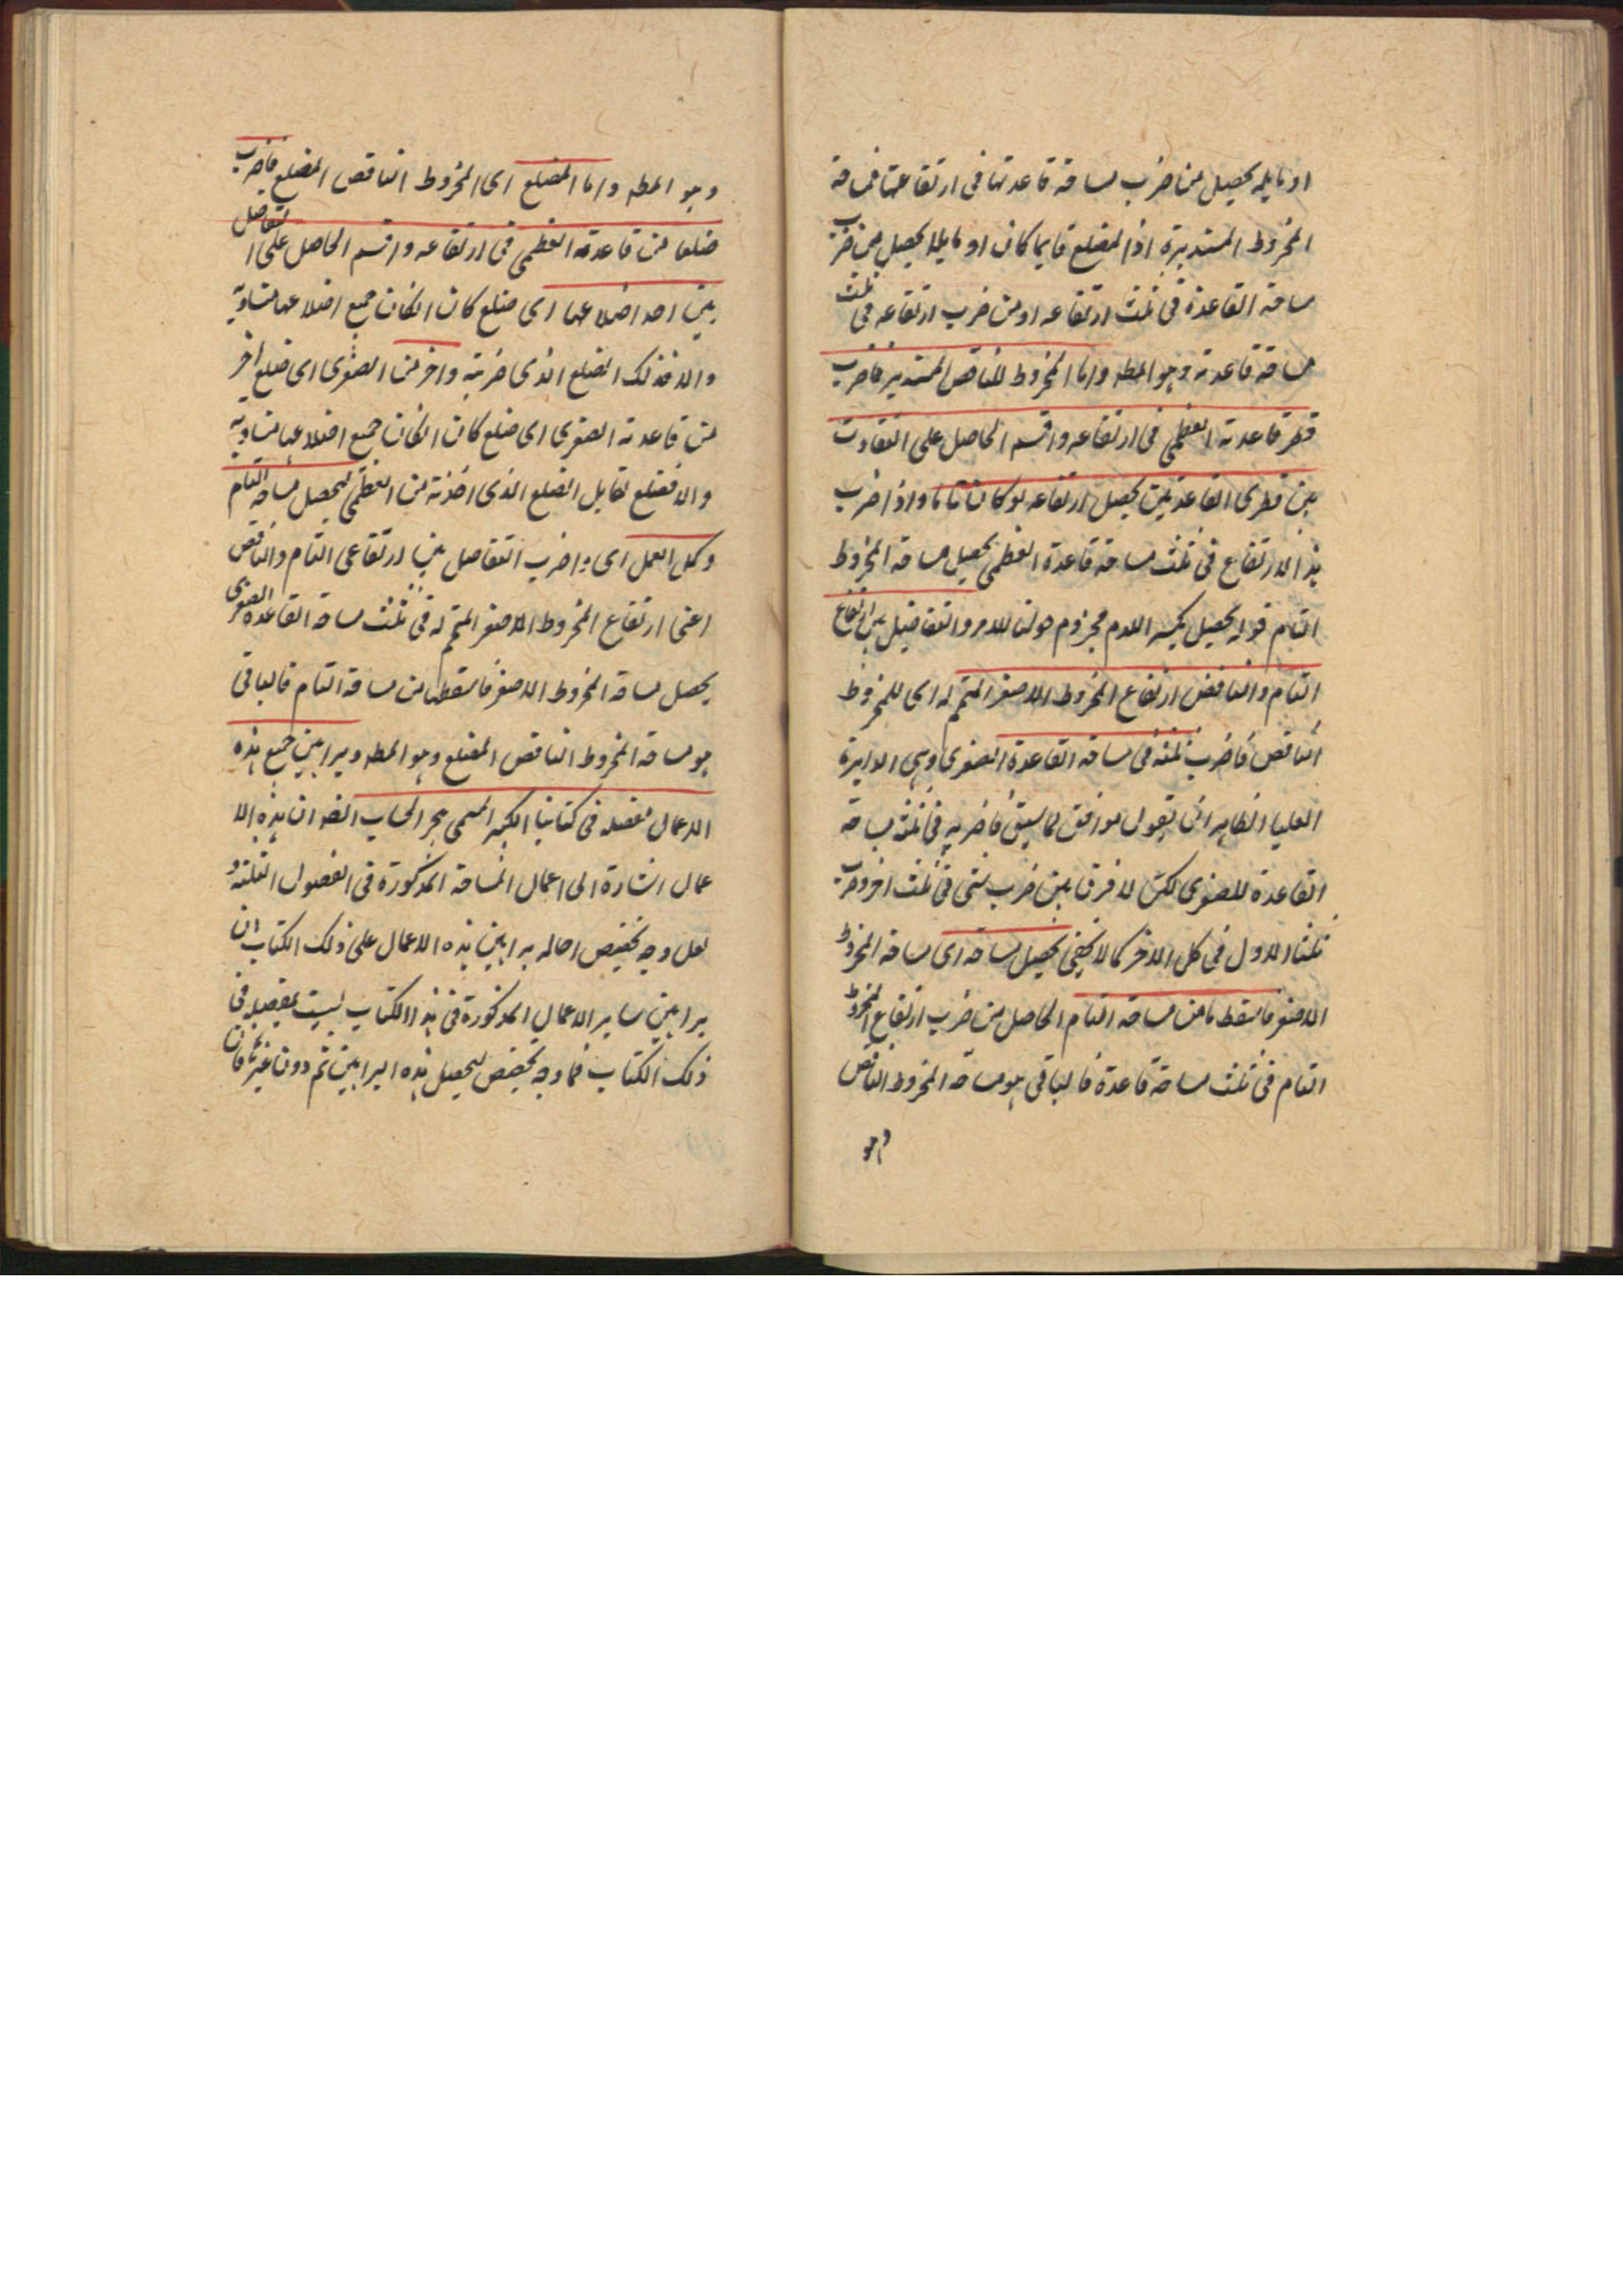 او مايله يحصل من ضرب مساحة قاعدتها فى ارتفاعها فمساحة
المخروط المستديرة اذ المضلع قايما كان او مايلا يحصل من ضرب
مساحة القاعدة فى ثلث ارتفاعه او من ضرب ارتفاعه فى ثلث
مساحة قاعدته وهو المطه واما المخروط الناقص المستدير فاضرب
قطر قاعدته العظمى فى ارتفاعه واقسم الحاصل على التفاوت
بين قطرى القاعدتين يحصل ارتفاعه لو كان تاما واذا ضرب
هذا الارتفاع فى ثلث مساحة قاعدة العظمى يحصل مساحة المخروط
التام قوله يحصل بكسر اللام مجزوم والتفاضل بين ارتفاع
التام والناقص ارتفاع المخروط الاصغر المتمم له اى للمخروط
الناقص فاضرب ثلثه فى مساحة القاعدة الصغرى وهى الدايرة
العليا الظاهر ان يقول موافق لما سبق فاضربه فى ثلث مساحة
القاعدة الصغرى لكن لا فرق بين ضرب شى فى ثلث اخر وضرب
ثلث الاول فى كل الاخر كما لا يخفى يحصل مساحته اى مساحة المخروط
الاصغر فاسقطها من مساحة التام الحاصل من ضرب ارتفاع المخروط
التام فى ثلث مساحة قاعدة فالباقى هو مساحة المخروط الناقص
وهو
وهو المطه واما المضلع اى المخروط الناقص المضلع فاضرب
ضلعا من قاعدته العظمى فى ارتفاعه واقسم الحاصل على التفاضل
بين احد اضلاعها اى ضلع كان انكان جميع اضلاعها متساوية
والا فذلك الضلع الذى ضربته واخر من الصغرى اى ضلع اخر
من قاعدته الصغرى اى ضلع كان انكان جميع اضلاعها متساوية
والا فضلع تقابل الضلع الذى اخذته من العظمى ليحصل مساحة التام
وكمل العمل اى اضرب التفاضل بين ارتفاعى التام والناقص
اعنى ارتفاع المخروط الاصغر المتمم له فى ثلث مساحة القاعدة الصغرى
يحصل مساحة المخروط الاصغر فاسقطها من مساحة التام فالباقى
هو مساحة المخروط الناقص المضلع وهو المطه وبراهين جميع هذه
الاعمال مفصلة فى كتابنا الكبير المسمى ببحر الحساب الظه ان هذه الا
عمال اشارة الى اعمال المساحة المذكورة فى الفصول الثلثة و
لعل وجه تخصيص احاله براهين هذه الاعمال على ذلك الكتاب ان
براهين ساير الاعمال المذكورة فى هذا الكتاب ليست بمفصله فى
ذلك الكتاب فما وجه تخصيص ليحصل هذه البراهين ثم دون غيرها فان